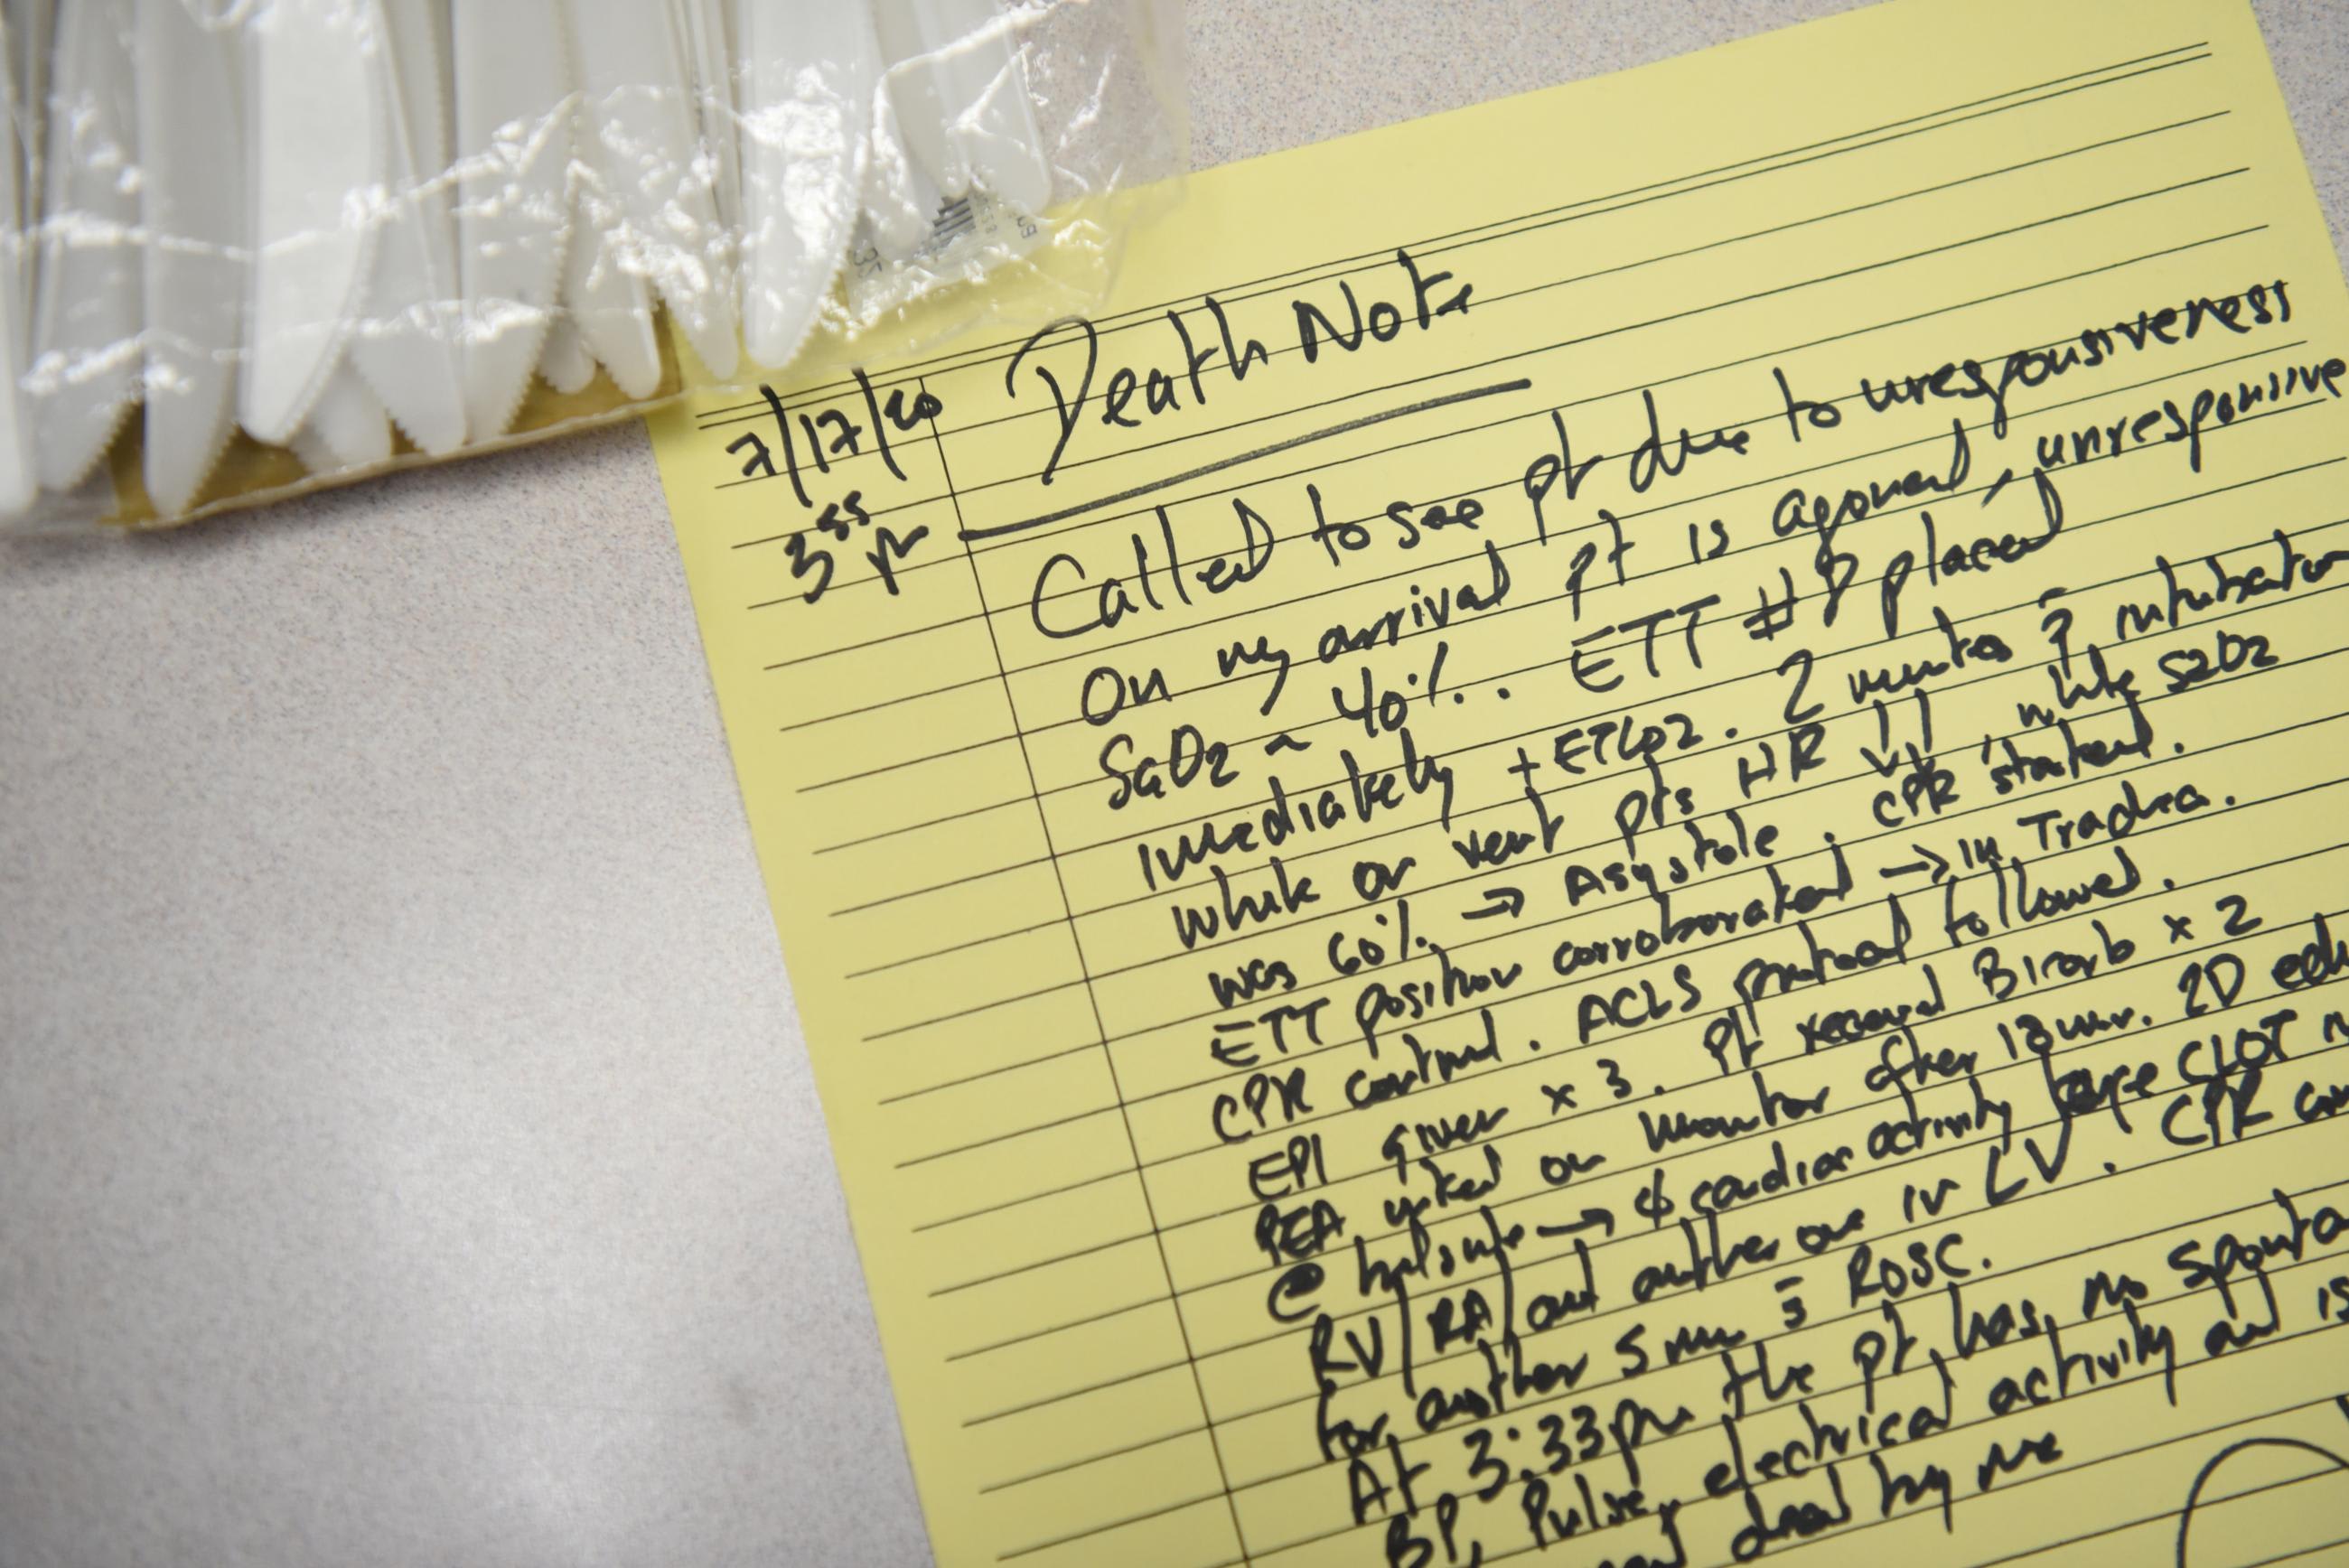 Death Note
7/17/20
3 55 pm
Called to see pt due to unresponsiveness
On my arrival pt is agonal, unresponsive
SaO2 ~ 40%. ETT #8 placed
immediately + ETCO2. 2 minutes intubation
while on vent pts HR ↓↓, while SaO2
was 60% → Asystole. CPR started.
ETT position corroborated → in Trachea.
CPR continued. ACLS protocol followed.
EPI given x 3. Pt received Bicarb x 2
PEA noted on monitor after 18 min. 2D
@ bedside → cardiac activity large CLOT
RV/RA/ and another one in LV. CPR
for another 5 min ROSC.
At 3:33pm the pt has no
BP, Pulse, electrical activity and is
dead by me